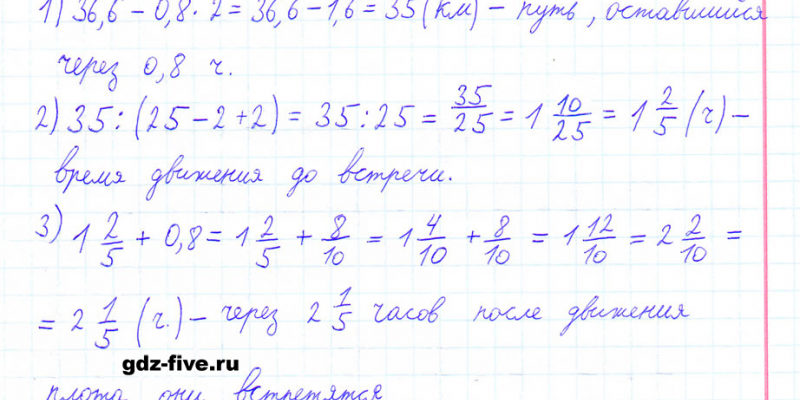 1) 36,6 − 0,8 · 2 = 36,6 − 1,6 = 35 (км) − путь, оставшийся
через 0,8 ч.
2) 35 : (25 − 2 + 2) = 35 : 25 = 35/25 = 1 10/25 = 1 2/5 (ч) −
время движения до встречи.
3) 1 2/5 + 0,8 = 1 2/5 + 8/10 = 1 4/10 + 8/10 = 1 12/10 = 2 2/10 =
= 2 1/5 (ч.) − через 2 1/5 часов после движения
gdz-five.ru
плота они встретятся